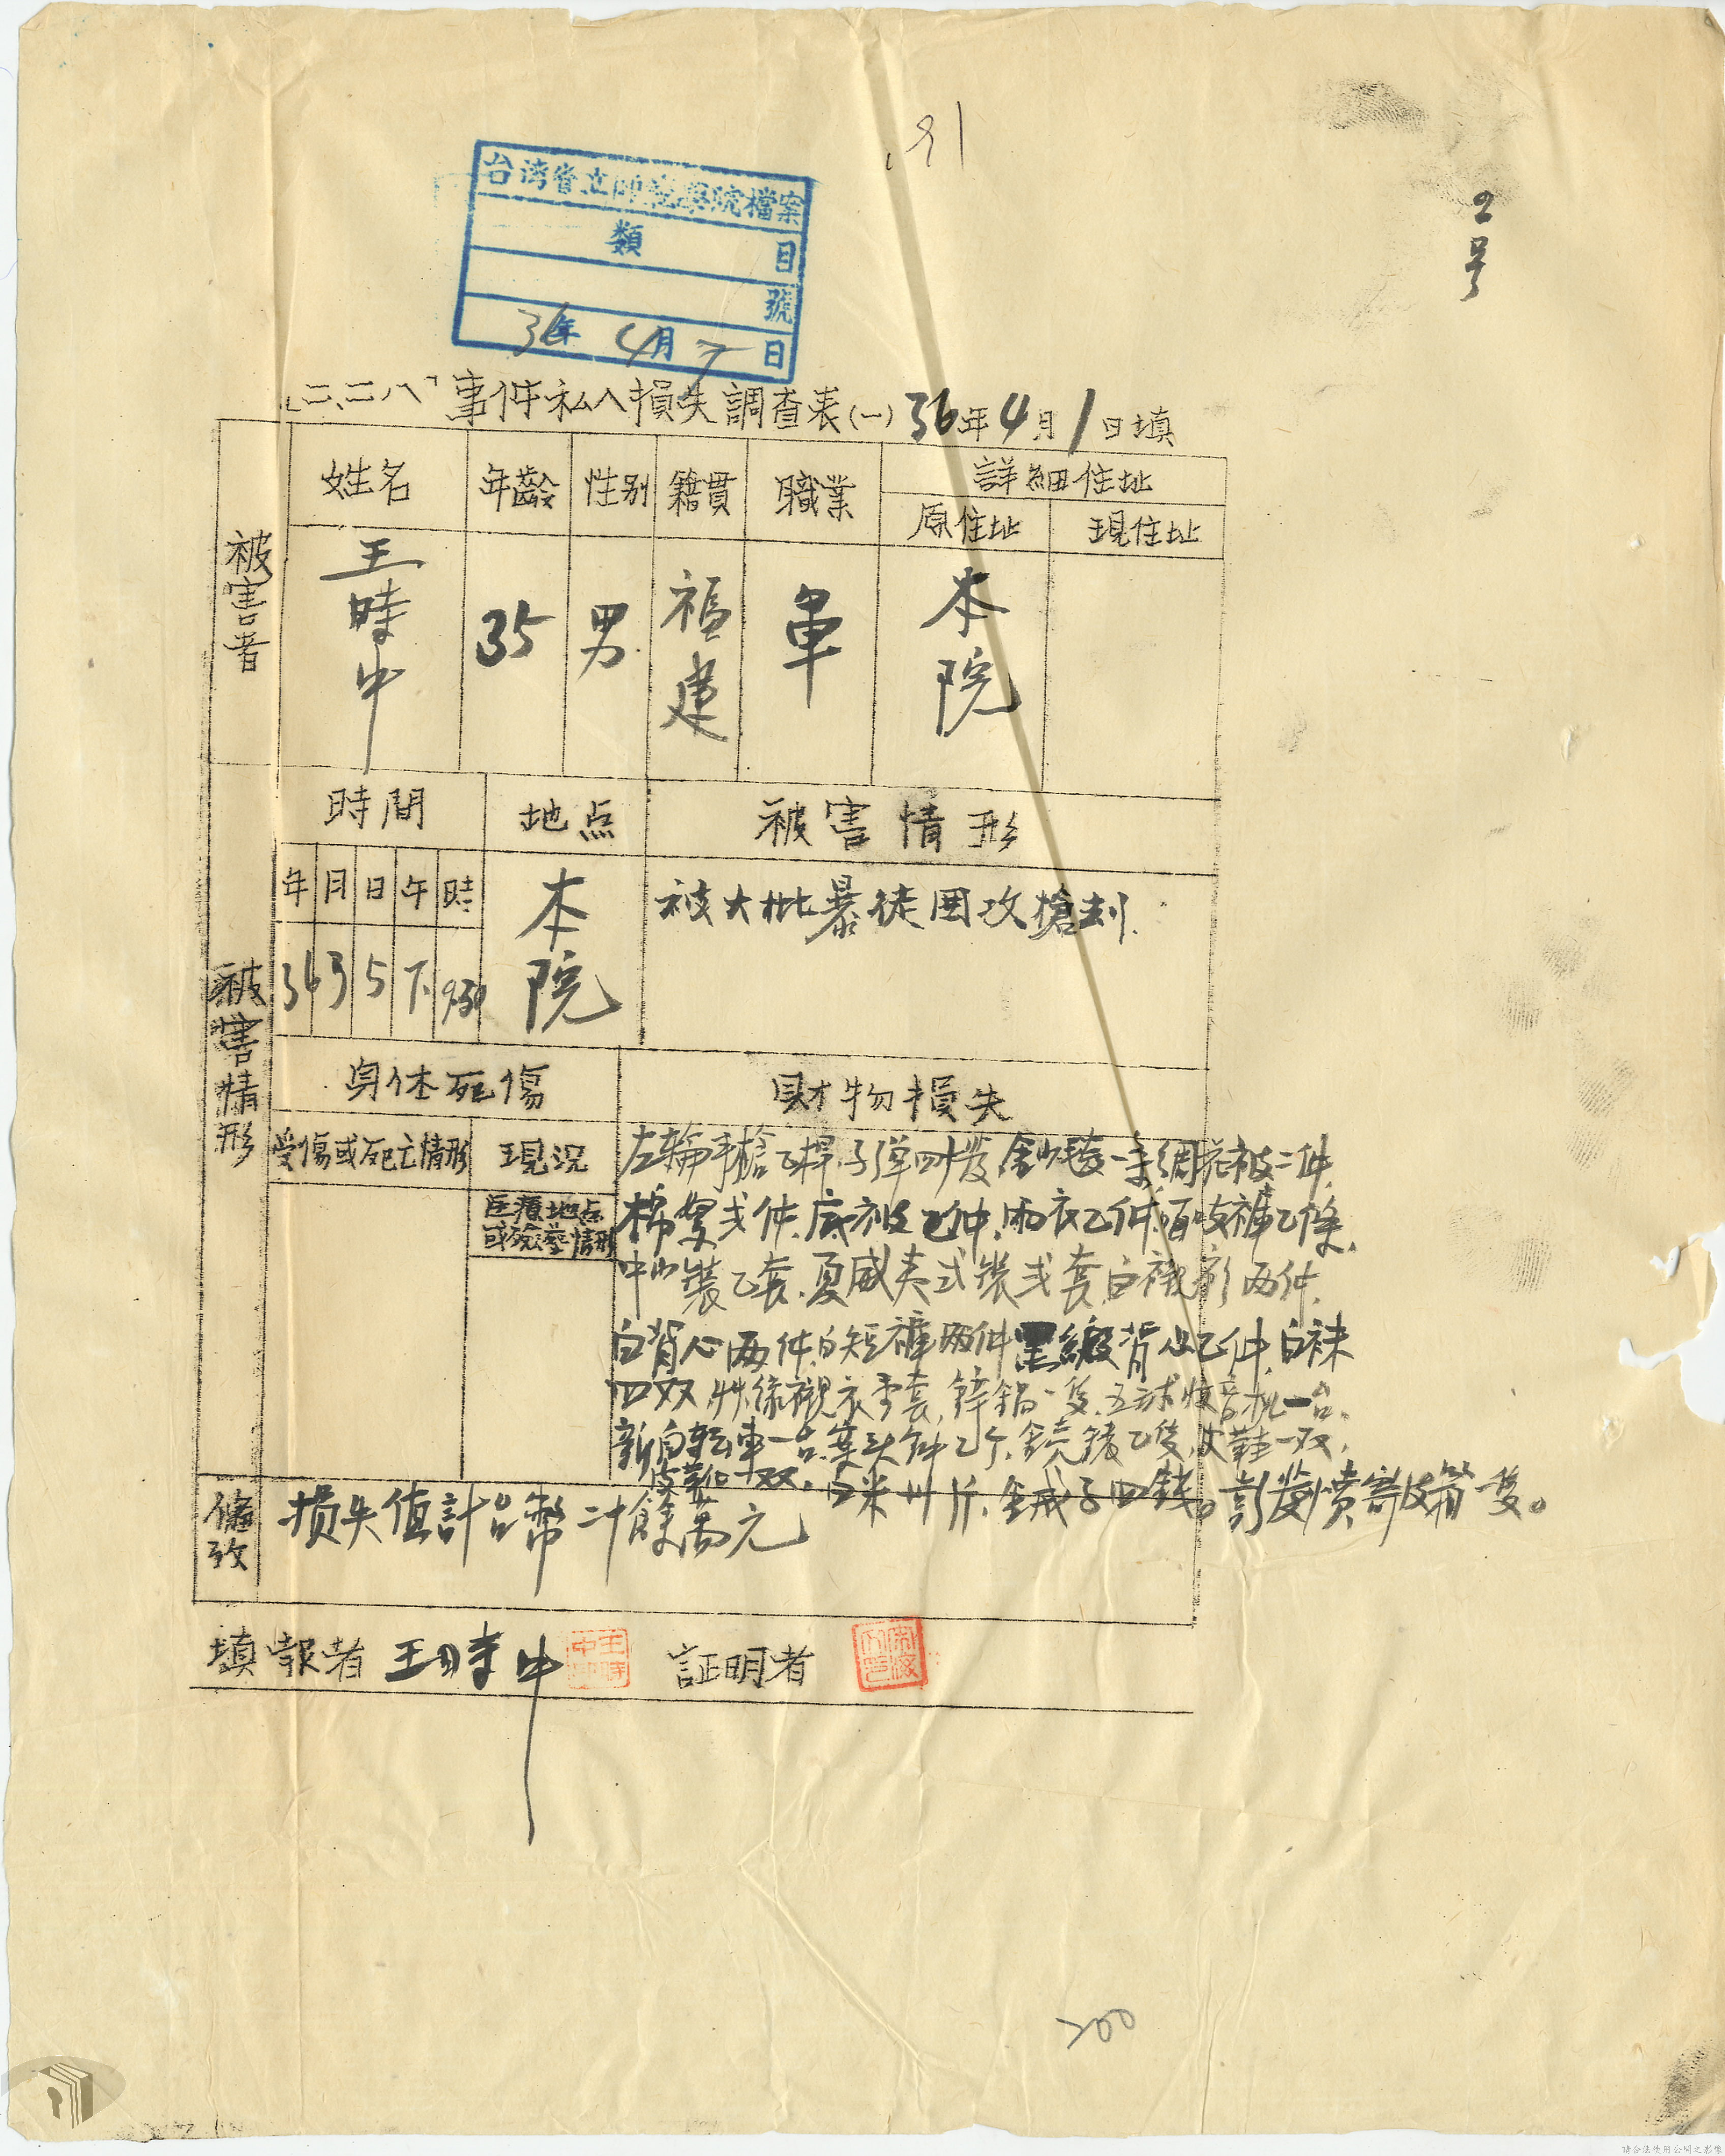 91
2号
台湾省立師範學院檔案
類 目
號
36年 4月 7日
「二、二八」事件私人損失調查表(一) 36年4月1日填
被害者
姓名 年齡 性别 籍貫 職業 詳細住址
原住址 現住址
王時中 35 男 福建 軍 本院
被害情形
時間 地点 被害情形
年 月 日 午 時
36 3 5 下 9.30 本院 被大批暴徒囲攻搶刼.
身体死傷 財物損失
受傷或死亡情形 現況
医療地点
或殮塟情形
左輪手槍乙桿.子弹四十發 金山毯一条,綢花被二件.
棉 弍件.底被乙件.雨衣乙件. 褲乙條.
中山装乙套.夏威夷式裝弍套.白襯衫兩件.
白背心兩件.白短褲兩件 黑緞背心乙件.白袜
四双. 絲襯衣 套,鋅鍋一隻.五球收音机一台.
新自転車一台.案头鈡乙个. 錶乙隻, 鞋一双,
皮鞋一双.白米卅斤.金戒子四錢。 皮箱一隻。
俻攷
損失值計台幣二十餘萬元
填報者 王時中 王時中印 証明者
200
請合法使用公開之影像